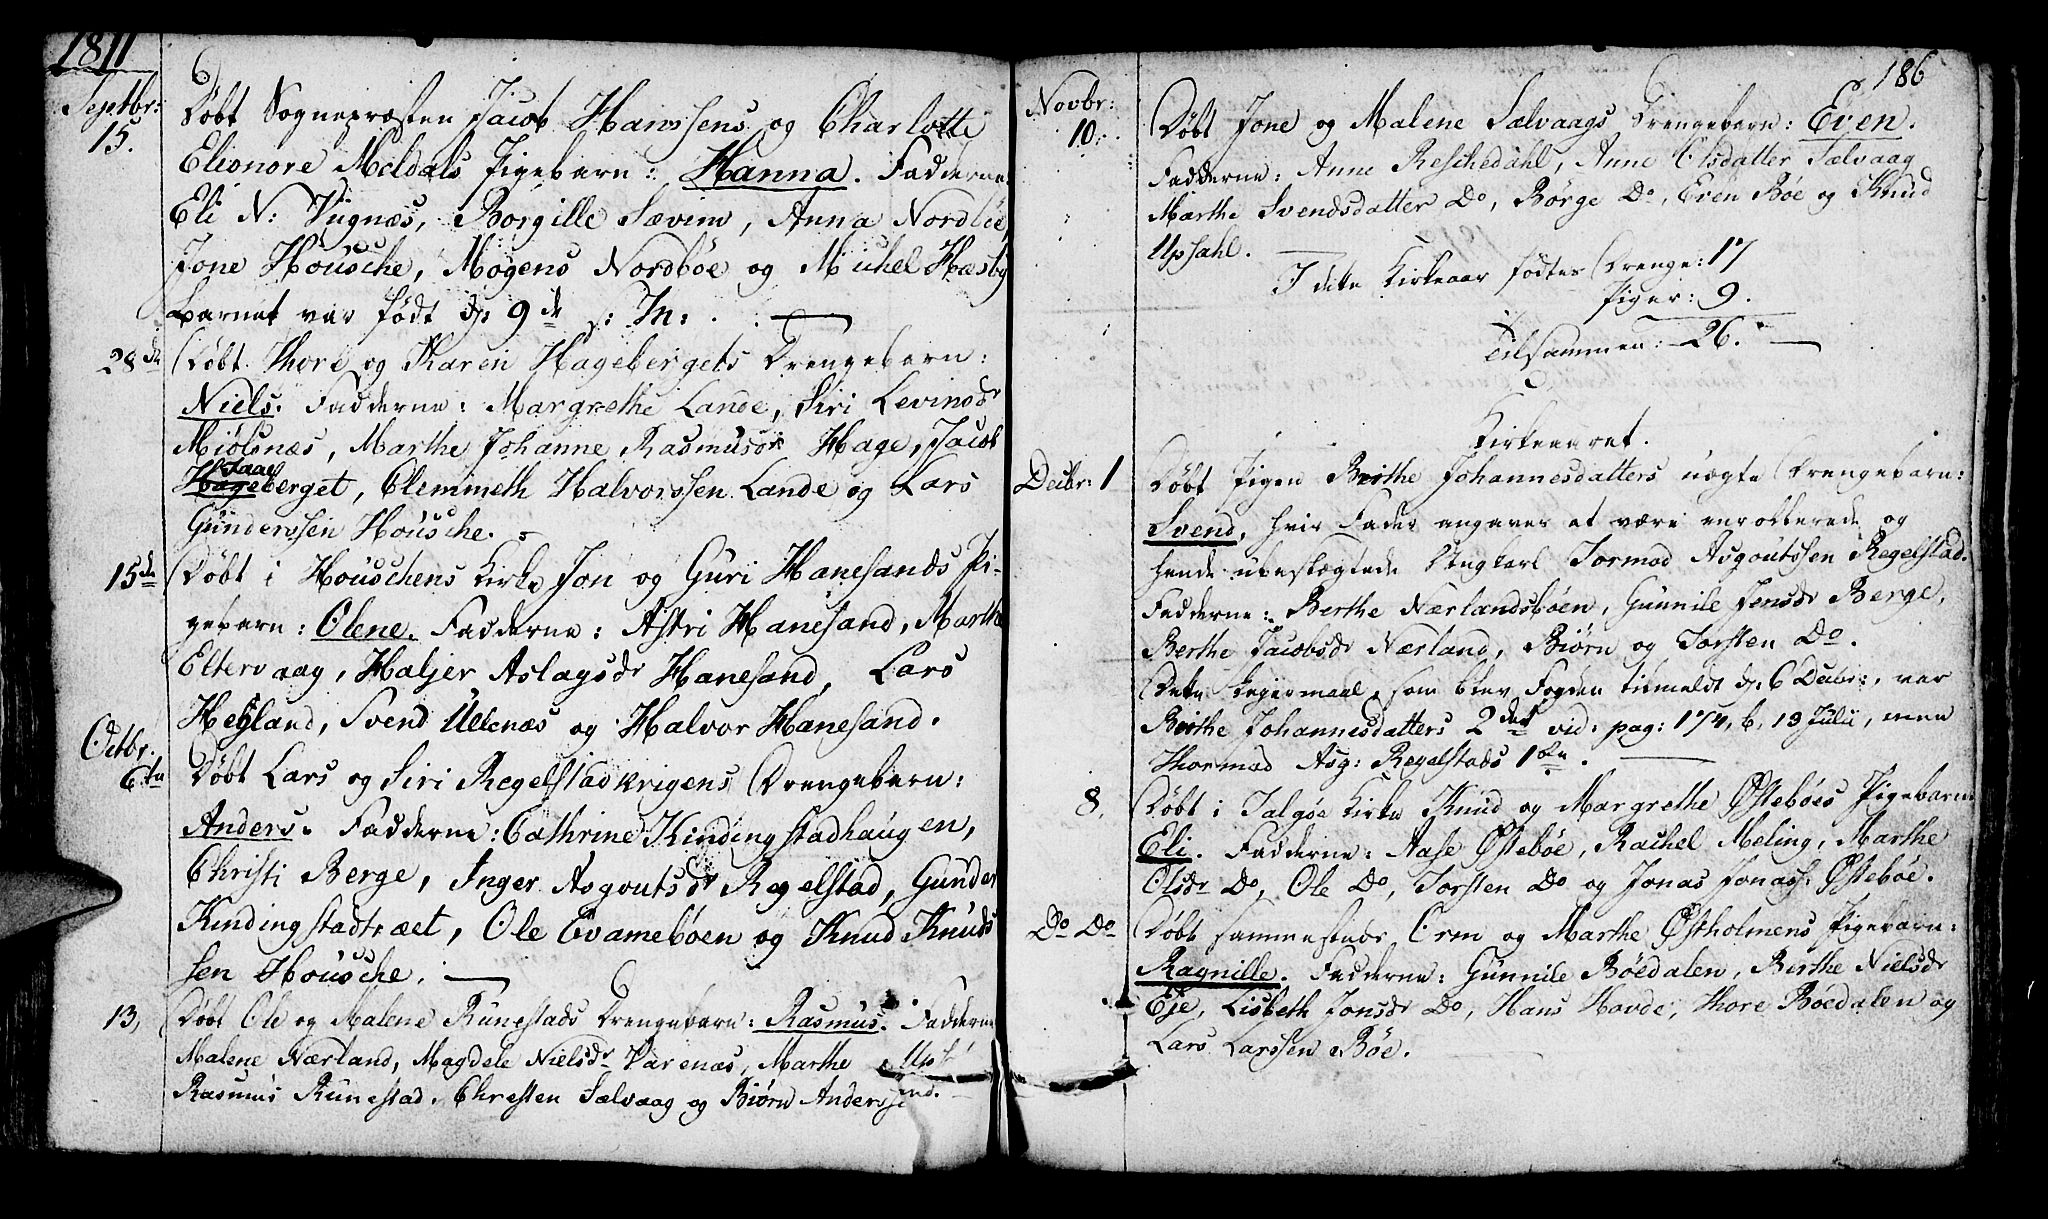 1811
Septbr:
15.
Døbt Sognepræsten Jacob Hanssens og Charlotte
Elionore Meldals Pigebarn: Hanna. Fadderne
Eli N: Vignæs, Borgille Sævim, Anna Nordböe,
Jone Housche, Mogens Nordböe og Michel Hæsby
Barnet var født d: 9de s: M: .
28de
Døbt Thore og Karen Hagebergets Drengebarn:
Niels. Fadderne: Margrethe Lande, Siri Levinsdr
Miölsnæs, Marthe Johanne Rasmusdr Hage, Jacob
Haugeberget, Clemmeth Halvorssen Lande og Lars
Gunderssen Housche.
15de
Døbt i Houschens Kirke Jon og Guri Hanesands Pi-
gebarn: Olene. Fadderne: Astri Hanesand, Marthe
Eltervaag, Haljer Aslagsdr Hanesand, Lars
Heyland, Svend Ullenæs og Halvor Hanesand.
Octbr.
6te
Døbt Lars og Siri Regelstadkrigens Drengebarn:
Anders. Fadderne: Cathrine Kindingstadhaugen,
Christi Berge, Inger Asgoutsdr Regelstad, Gunder
Kindingstadtræet, Ole Evameböen og Knud Knuds
sen Housche.
13,
Døbt Ole og Malene Runestads Drengebarn: Rasmus. Fadderne
Malene Nærland, Magdele Nielsdr Varenæs, Marthe
Rasmus Runestad, Chresten Sælvaag og Biörn Anderss
186
Novbr:
10.
Døbt Jone og Malene Sælvaags Drengebarn: Even.
Fadderne: Anne Reschedahl, Anne Olsdatter Sælvaag
Marthe Svendsdatter Do, Börge Do, Even Böe og Knud
Upsahl.
I dette Kirkeaar födte Drenge: 17
Piger: 9.
Tilsammen: 26.
Kirkeaaret.
Decbr: 1
Døbt Pigen Berthe Johannesdatters uægte Drengebarn:
Svend, hvis Fader angaves at være enrollerede og
hende ubeslægtede Ungkarl Tormod Asgoutssen Regelstad.
Fadderne: Berthe Nærlandsböen, Gunnile Jensdr Berge,
Berthe Jacobsdr Nærland, Biörn og Torsten Do.
Dette Leiermaal, som blev Fogden tilmeldt d: 6 Decbr:, var
Berthe Johannesdatters 2det vid: pag: 174, b, 13 Julii, men
Thormod Asg: Regelstads 1ste.
8.
Døbt i Talgöe Kirke Knud og Margrethe Östeböes Pigebarn
Eli. Fadderne: Aase Östeböe, Rachel Meling, Marthe
Olsdr Do, Ole Do, Torsten Do og Jonas Jonass: Östeböe.
Do Do
Døbt sammesteds Orm og Marthe Östholmens Pigebarn:
Ragnille. Fadderne: Gunnile Böedalen, Berthe Nielsdr
Eje, Lisbeth Jonsdr Do, Hans Hovde, Thore Böedalen og
Lars Larssen Böe.